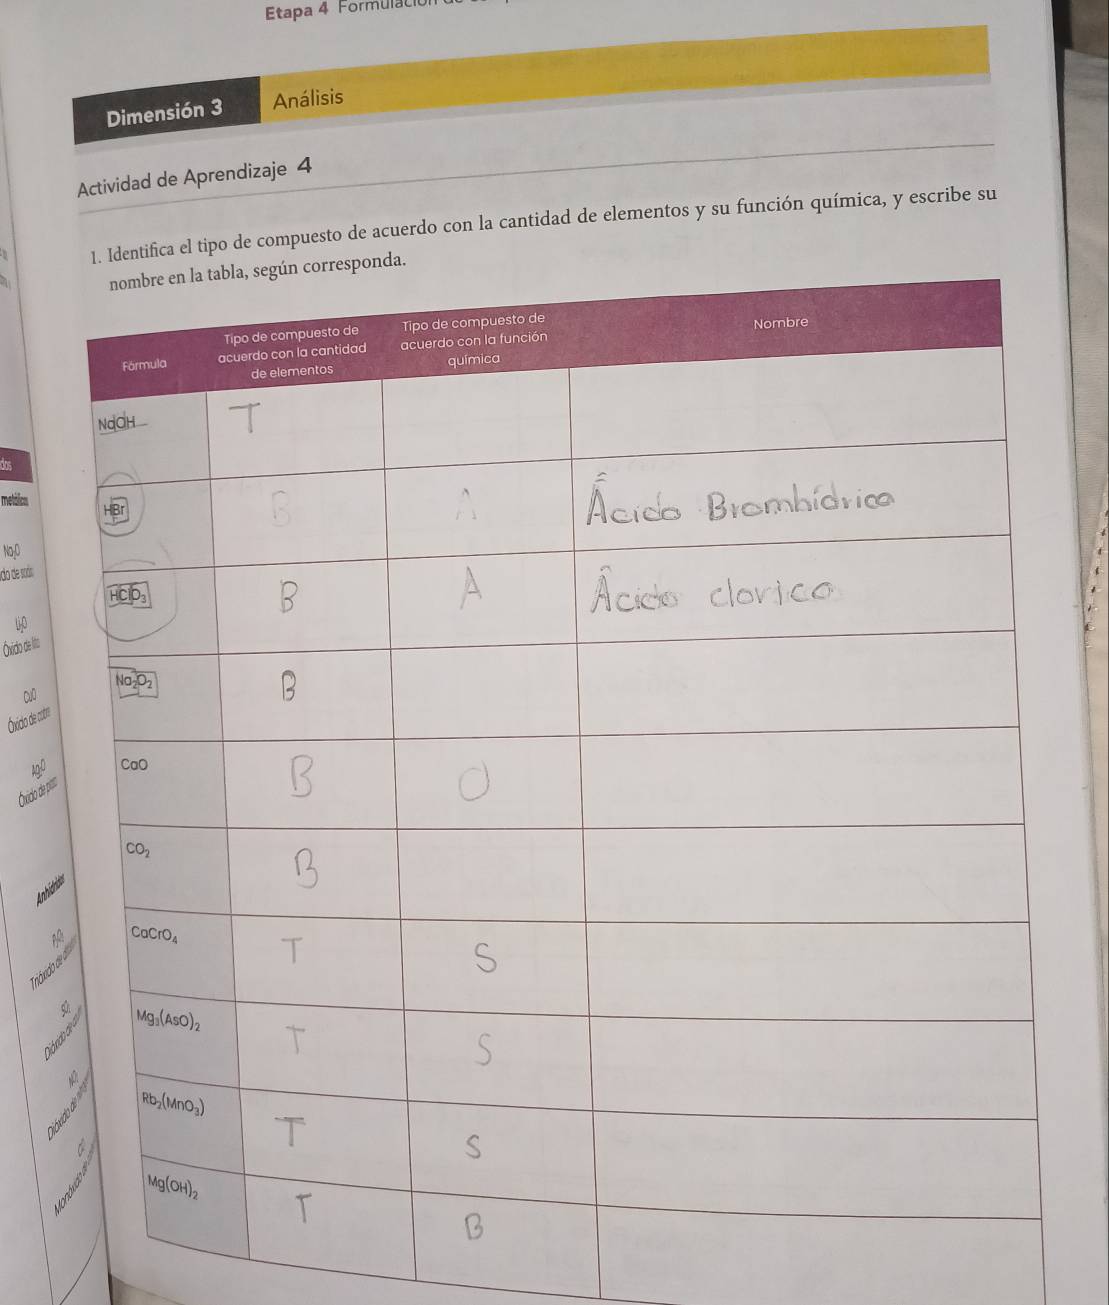 Etapa 4 Formulación
Dimensión 3 Análisis
Actividad de Aprendizaje 4
1. Identifica el tipo de compuesto de acuerdo con la cantidad de elementos y su función química, y escribe su
nombre en la tabla, según corresponda.
Fórmula
Tipo de compuesto de
acuerdo con la cantidad
de elementos
Tipo de compuesto de
acuerdo con la función
química
Nombre
NaOH T
HBr B A Ácido Bromhídrico
HClO₃ B A Ácido clorico
Na₂O₂ B
CaO B O
CO₂ B
CaCrO₄ T S
Mg₃(AsO)₂ T S
Rb₂(MnO₃) T S
Mg(OH)₂ T B
dos
metálicos
Na₂O
do de sodio
Li₂O
Óxido de litio
CuO
Óxido de cobre
Ag₂O
Óxido de plata
Anhídridos
Trióxido de
SO₂
Dióxido de
NO₂
Dióxido de
CO
Monóxido de